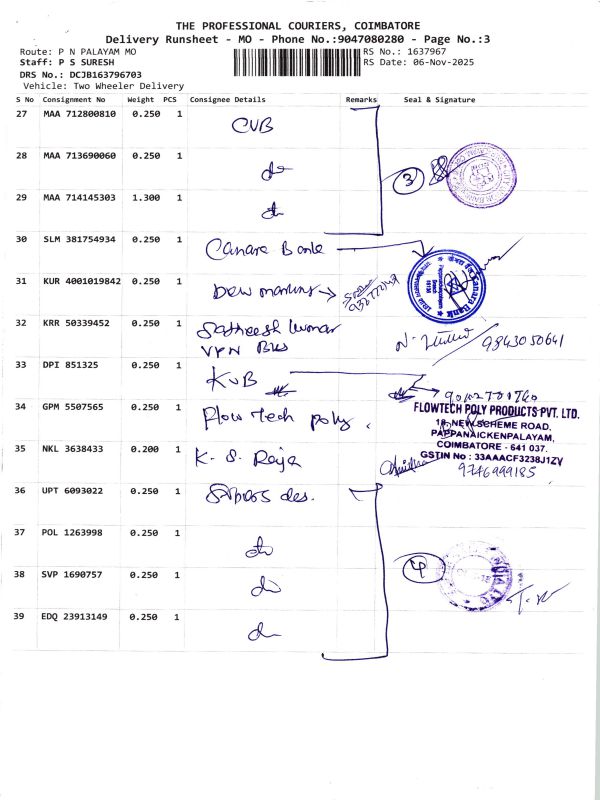 THE PROFESSIONAL COURIERS, COIMBATORE
Delivery Runsheet - MO - Phone No.:9047080280 - Page No.:3
Route: P N PALAYAM MO RS No.: 1637967
Staff: P S SURESH RS Date: 06-Nov-2025
DRS No.: DCJB163796703
Vehicle: Two Wheeler Delivery
S No Consignment No Weight PCS Consignee Details Remarks Seal & Signature
27 MAA 712800810 0.250 1 CUB
28 MAA 713690060 0.250 1 do
3
29 MAA 714145303 1.300 1 do
30 SLM 381754934 0.250 1 Canara Bank
Canara Bank
31 KUR 4001019842 0.250 1
32 KRR 50339452 0.250 1 Satheesh Kumar
9843050641
33 DPI 851325 0.250 1 KVB
34 GPM 5507565 0.250 1 Flow tech poly.
FLOWTECH POLY PRODUCTS PVT. LTD.
18, NEW SCHEME ROAD,
PAPPANAICKENPALAYAM,
COIMBATORE - 641 037.
GSTIN No : 33AAACF3238J1ZV
35 NKL 3638433 0.200 1 K. S. Raja
9746999185
36 UPT 6093022 0.250 1
37 POL 1263998 0.250 1 do
4
38 SVP 1690757 0.250 1 do
39 EDQ 23913149 0.250 1 do